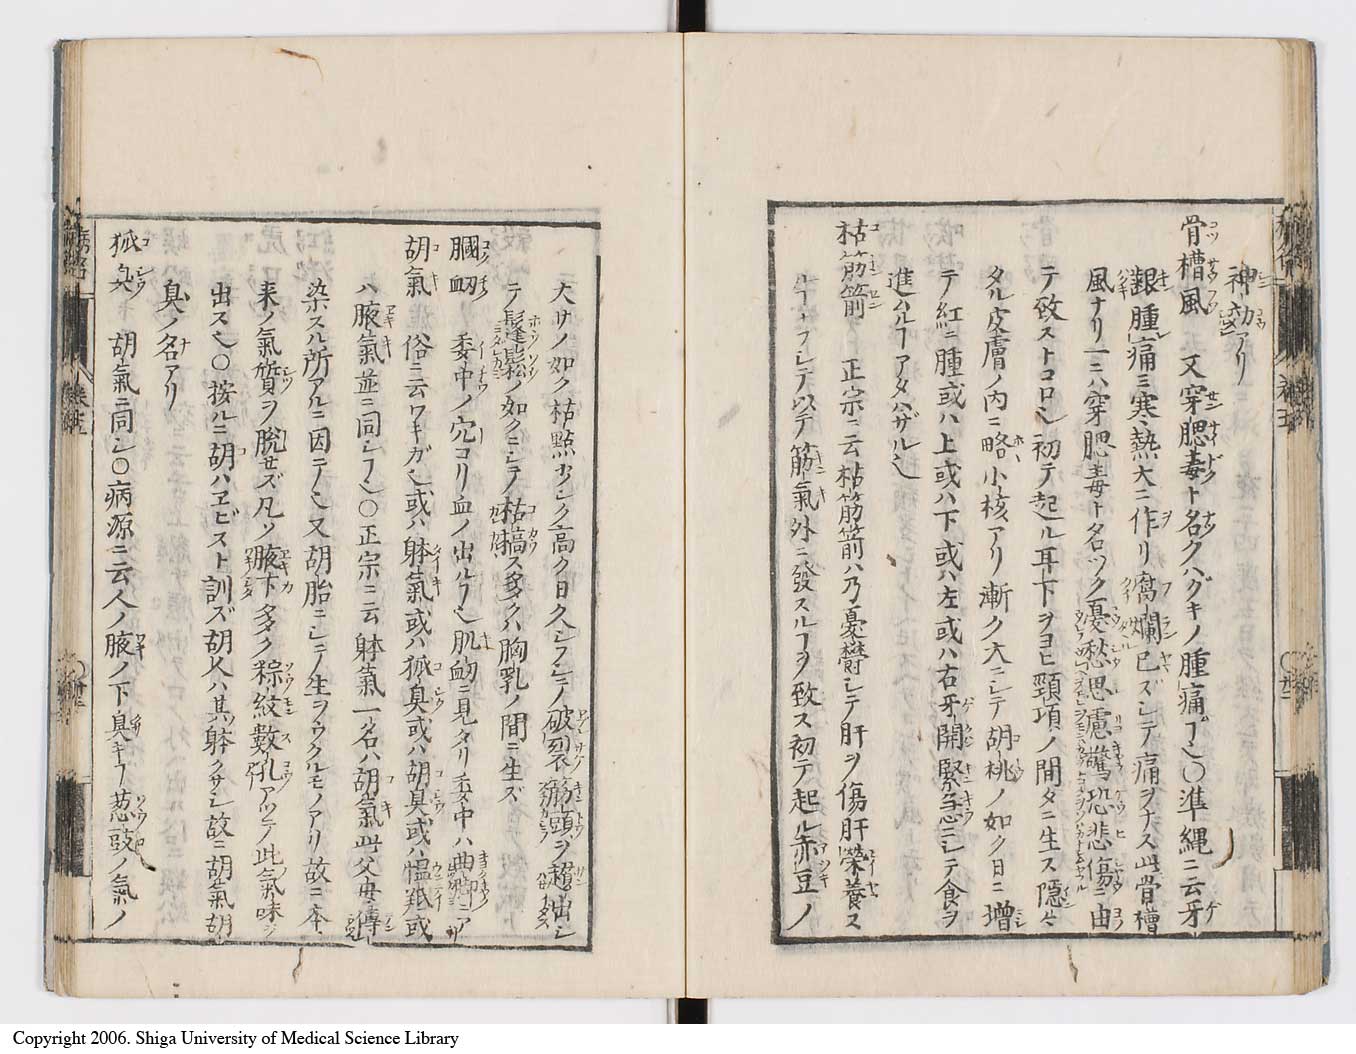 神効アリ
骨槽風 又穿腮毒ト名クハグキノ腫痛ヿ也〇準繩ニ云牙
齦腫痛ミ寒熱大ニ作リ腐爛已ズシテ痛ヲナス此骨槽
風ナリ一ニハ穿腮毒トナツク憂愁思慮驚恐悲傷ニ由
テ致ストコロ也初テ起ル耳下ヲヨヒ頸項ノ間タニ生ス隠々
タル皮膚ノ内ニ略小核アリ漸ク大ニシテ胡桃ノ如ク日ニ増
テ紅ニ腫或ハ上或ハ下或ハ左或ハ右牙開緊急ニシテ食ヲ
進ルヿアタハザル也
枯筋箭 正宗ニ云枯筋箭ハ乃憂鬱シテ肝ヲ傷肝榮養ス
筋氣外ニ發スルヿヲ致ス初テ起ル赤豆ノ
大サノ如ク枯點 高ク日久シフシテ破裂筋頭ヲ趲出シ
テ鬔鬆ノ如クニシテ枯槁ス多クハ胸乳ノ間ニ生ズ
膕衂 委中ノ穴ヨリ血ノ出ルヿ也肌衂ニ見タリ委中ハ曲䐐ニアリ
胡氣 俗ニ云ワキガ也或ハ躰氣或ハ狐臭或ハ胡臭或ハ慍羝或
ハ腋氣並ニ同シヿ也〇正宗ニ云躰氣一名ハ胡氣此父母傳
染スル所アルニ因テ也又胡胎ニシテ生ヲウクルモノアリ故ニ本
来ノ氣質ヲ脱セズ凡ソ腋下多ク棕紋數孔アツテ此氣味ヲ
出ス也〇按ルニ胡ハヱビスト訓ズ胡人ハ其躰クサシ故ニ胡氣胡
臭ノ名アリ
狐臭 胡氣ニ同シ〇病源ニ云人ノ腋ノ下臭キヿ葱豉ノ氣ノ
Copyright 2006. Shiga University of Medical Science Library